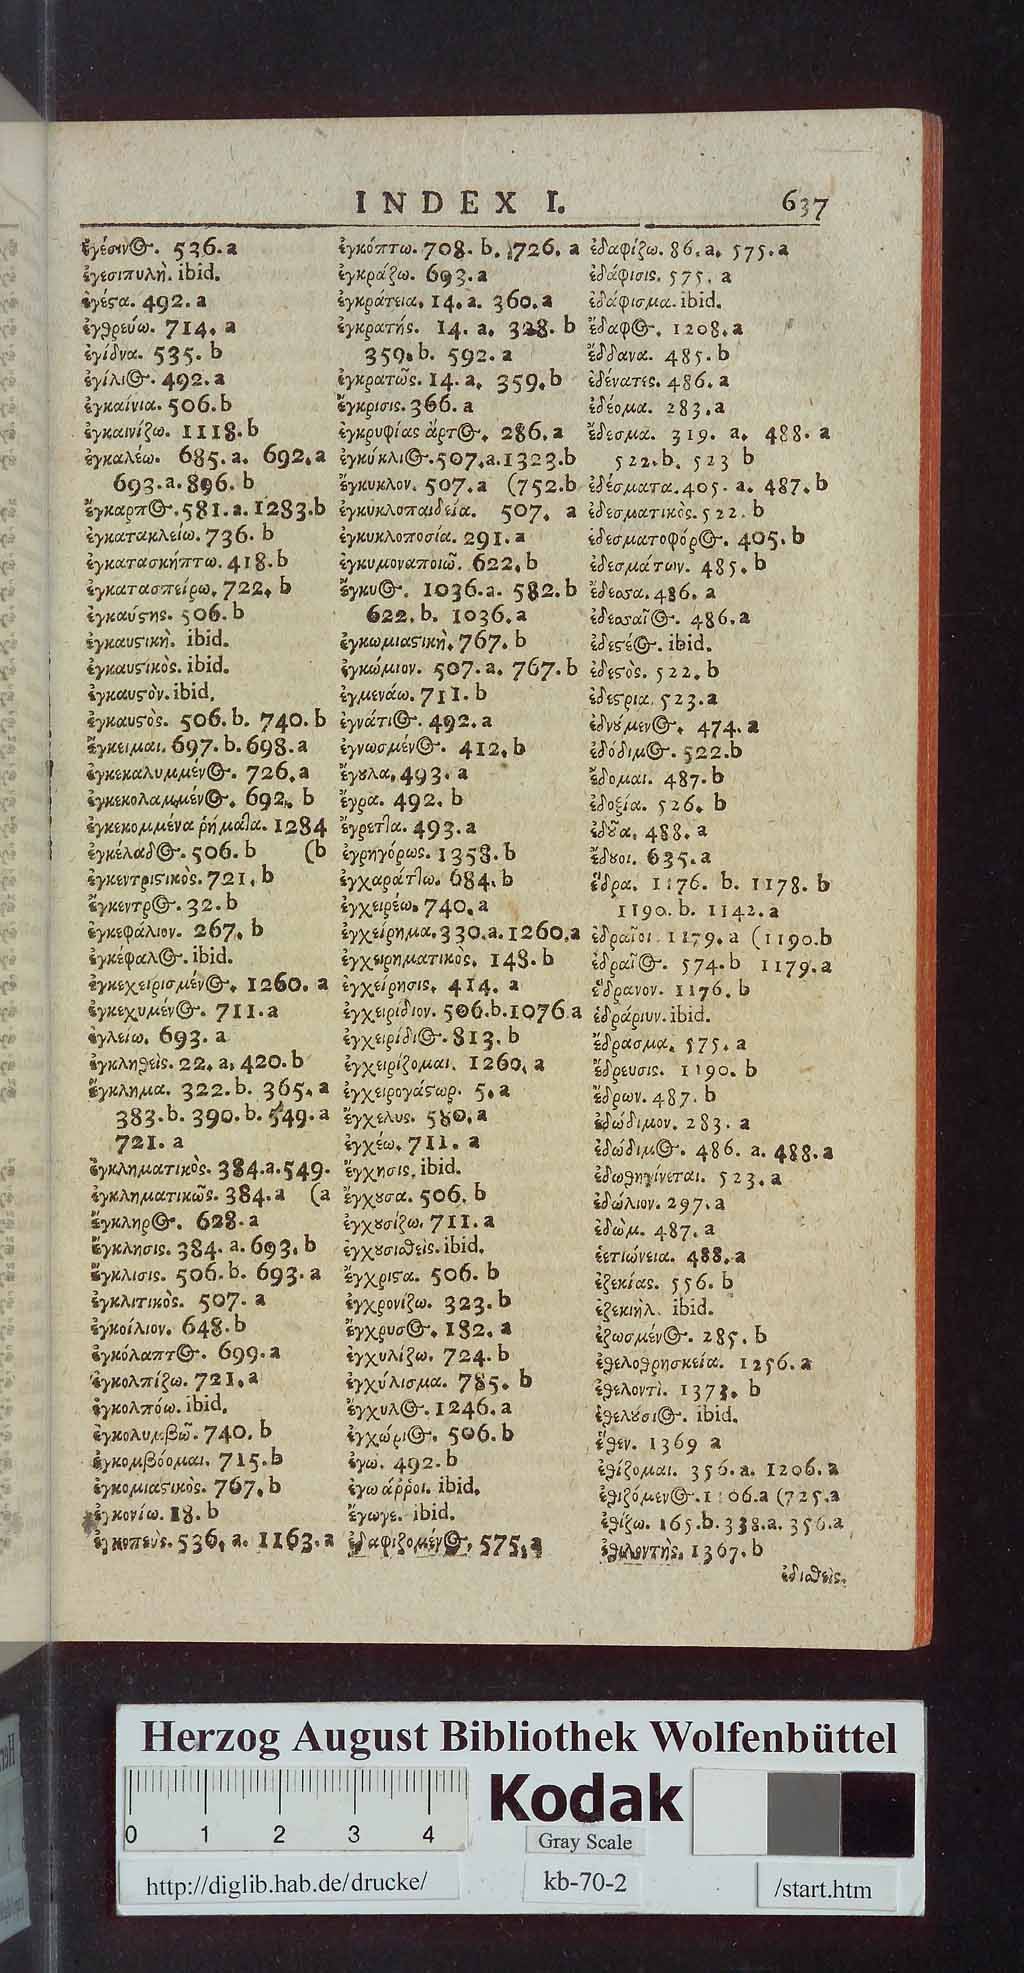 INDEX I. 637
ἐγέσινος. 536.a
ἐγεσιπυλὴ. ibid.
ἐγέστα. 492.a
ἐγθρεύω. 714. a
ἐγίδνα. 535. b
ἐγίλιος. 492.a
ἐγκαίνια. 506.b
ἐγκαινίζω. 1118.b
ἐγκαλέω. 685.a. 692.a
693.a.896. b
ἔγκαρπος.581.a.1283.b
ἐγκατακλείω.736. b
ἐγκατασκήπτω.418.b
ἐγκατασπείρω.722. b
ἐγκαύστης. 506.b
ἐγκαυστικὴ. ibid.
ἐγκαυστικὸς. ibid.
ἐγκαυστὸν. ibid.
ἐγκαυστὸς. 506.b. 740.b
ἔγκειμαι.697.b.698.a
ἐγκεκαλυμμένος. 726.a
ἐγκεκολαμμένος. 692. b
ἐγκεκομμένα ῥήματα. 1284
ἐγκέλαδος.506.b (b
ἐγκεντριστικὸς.721.b
ἔγκεντρος.32.b
ἐγκεφάλιον. 267. b
ἐγκέφαλος. ibid.
ἐγκεχειρισμένος. 1260. a
ἐγκεχυμένος. 711.a
ἐγλείω. 693. a
ἐγκληθεὶς. 22. a. 420.b
ἔγκλημα. 322.b. 365. a
383.b. 390.b. 549.a
721. a
ἐγκληματικὸς. 384.a.549.
ἐγκληματικῶς. 384.a (a
ἔγκληρος. 628.a
ἔγκλησις. 384. a.693. b
ἔγκλισις. 506.b. 693.a
ἐγκλιτικὸς. 507. a
ἐγκοίλιον. 648.b
ἐγκόλαπτος. 699.a
ἐγκολπίζω. 721.a
ἐγκολπόω. ibid.
ἐγκολυμβῶ. 740. b
ἐγκομβόομαι. 715.b
ἐγκομιαστικὸς. 767. b
ἐγκονίω. 18. b
ἐγκοπεὺς. 536. a. 1163.a
ἐγκόπτω. 708. b. 726. a
ἐγκράζω. 693.a
ἐγκράτεια. 14.a. 360.a
ἐγκρατής. 14. a. 328. b
359.b. 592.a
ἐγκρατῶς. 14.a. 359.b
ἔγκρισις. 366. a
ἐγκρυφίας ἄρτος. 286.a
ἐγκύκλιος.507.a.1323.b
ἔγκυκλον. 507.a (752.b
ἐγκυκλοπαιδεία. 507. a
ἐγκυκλοποσία. 291.a
ἐγκυμοναποιῶ. 622.b
ἔγκυος. 1036.a. 582.b
622. b. 1036.a
ἐγκωμιαστικὴ. 767. b
ἐγκώμιον. 507.a. 767.b
ἐγμενάω. 711.b
ἐγνάτιος. 492.a
ἐγνωσμένος. 412. b
ἔγουλα. 493. a
ἔγρα. 492. b
ἔγρεττα. 493.a
ἐγρηγόρως. 1358.b
ἐγχαράττω. 684. b
ἐγχειρέω. 740. a
ἐγχείρημα.330.a.1260.a
ἐγχειρηματικὸς. 148. b
ἐγχείρησις. 414. a
ἐγχειρίδιον. 506.b.1076.a
ἐγχειρίδιος. 813. b
ἐγχειρίζομαι. 1260. a
ἐγχειρογάστωρ. 5. a
ἔγχελυς. 580.a
ἐγχέω. 711. a
ἔγχησις. ibid.
ἔγχουσα. 506. b
ἐγχουσίζω. 711.a
ἐγχουσιαθεὶς. ibid.
ἔγχριστα. 506. b
ἐγχρονίζω. 323.b
ἔγχρυσος. 182. a
ἐγχυλίζω. 724. b
ἐγχύλισμα. 785. b
ἔγχυλος. 1246.a
ἐγχώριος. 506.b
ἐγω. 492.b
ἐγωάῤῥοι. ibid.
ἔγωγε. ibid.
ἐδαφιζομένος. 575.a
ἐδαφίζω. 86.a. 575.a
ἐδάφισις. 575. a
ἐδάφισμα. ibid.
ἔδαφος. 1208.a
ἔδδανα. 485. b
ἐδένατες. 486.a
ἐδέομα. 283.a
ἔδεσμα. 319. a. 488. a
522.b. 523 b
ἐδέσματα.405. a. 487.b
ἐδεσματικὸς. 522. b
ἐδεσματοφόρος. 405. b
ἐδεσμάτων. 485. b
ἔδεσσα. 486. a
ἐδεσσαῖος. 486.a
ἐδεστέος. ibid.
ἐδεστὸς. 522. b
ἐδεστρια. 523.a
ἐδνούμενος. 474. a
ἐδόδιμος. 522.b
ἔδομαι. 487.b
ἐδοξία. 526. b
ἐδοῦα. 488. a
ἔδουοι. 635.a
ἕδρα. 1176. b. 1178. b
1190. b. 1142. a
ἑδραῖοι 1179.a (1190.b
ἑδραῖος. 574.b 1179.a
ἕδρανον. 1176. b
ἑδράριυν. ibid.
ἕδρασμα. 575. a
ἕδρευσις. 1190. b
ἔδρων. 487. b
ἐδώδιμον. 283. a
ἐδώδιμος. 486. a. 488.a
ἐδωθηγίνεται. 523. a
ἐδώλιον. 297.a
ἐδὼμ. 487. a
ἑετιώνεια. 488. a
ἐζεκίας. 556. b
ἐζεκιὴλ. ibid.
ἐζωσμένος. 285. b
ἐθελοθρησκεία. 1256.a
ἐθελοντὶ. 1373. b
ἐθελούσιος. ibid.
ἕθεν. 1369 a
ἐθίζομαι. 356.a. 1206. a
ἐθιζόμενος.1206.a (725.a
ἐθίζω. 165.b. 338.a. 356.a
ἐθελοντὴς. 1367. b
ἐδιαθεὶς.
Herzog August Bibliothek Wolfenbüttel
0 1 2 3 4
Kodak
Gray Scale
http://diglib.hab.de/drucke/
kb-70-2
/start.htm